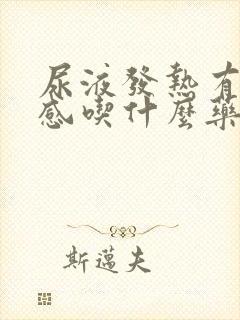 尿液發熱有
感喫什麼藥
斯邁夫